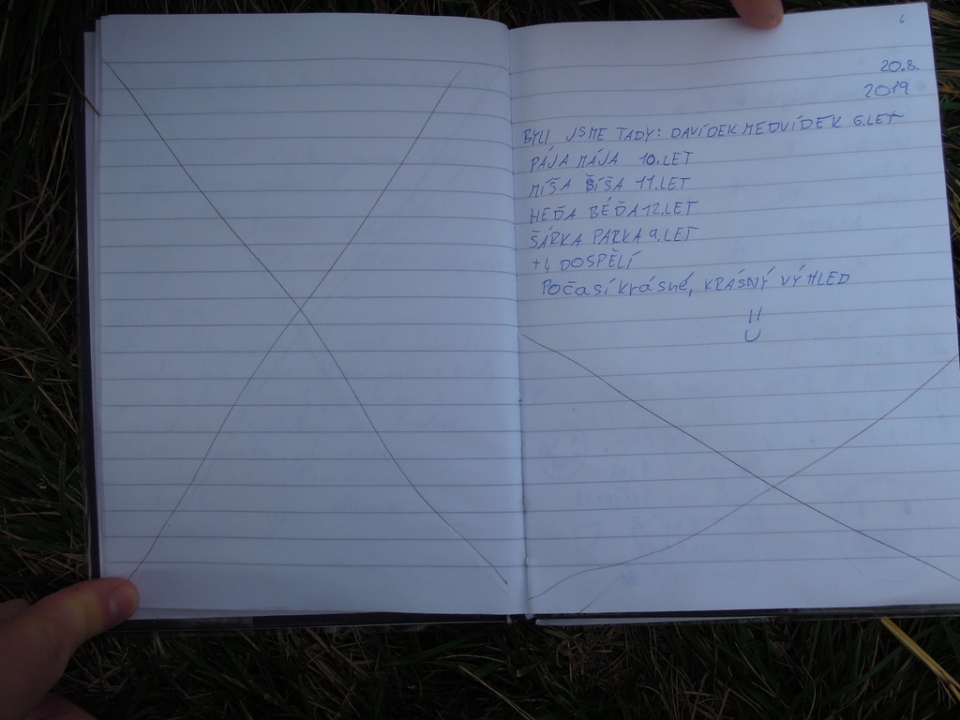 6
20.8.
2019
BYLI JSME TADY: DAVÍDEK MEDVÍDEK 6.LET
PÁJA MÁJA 10.LET
MÍŠA ŠÍŠA 11.LET
HEĎA BÉĎA 12.LET
ŠÁRKA PARKA 9.LET
+4 DOSPĚLÍ
Počasí krásné, KRÁSNÝ VÝHLED